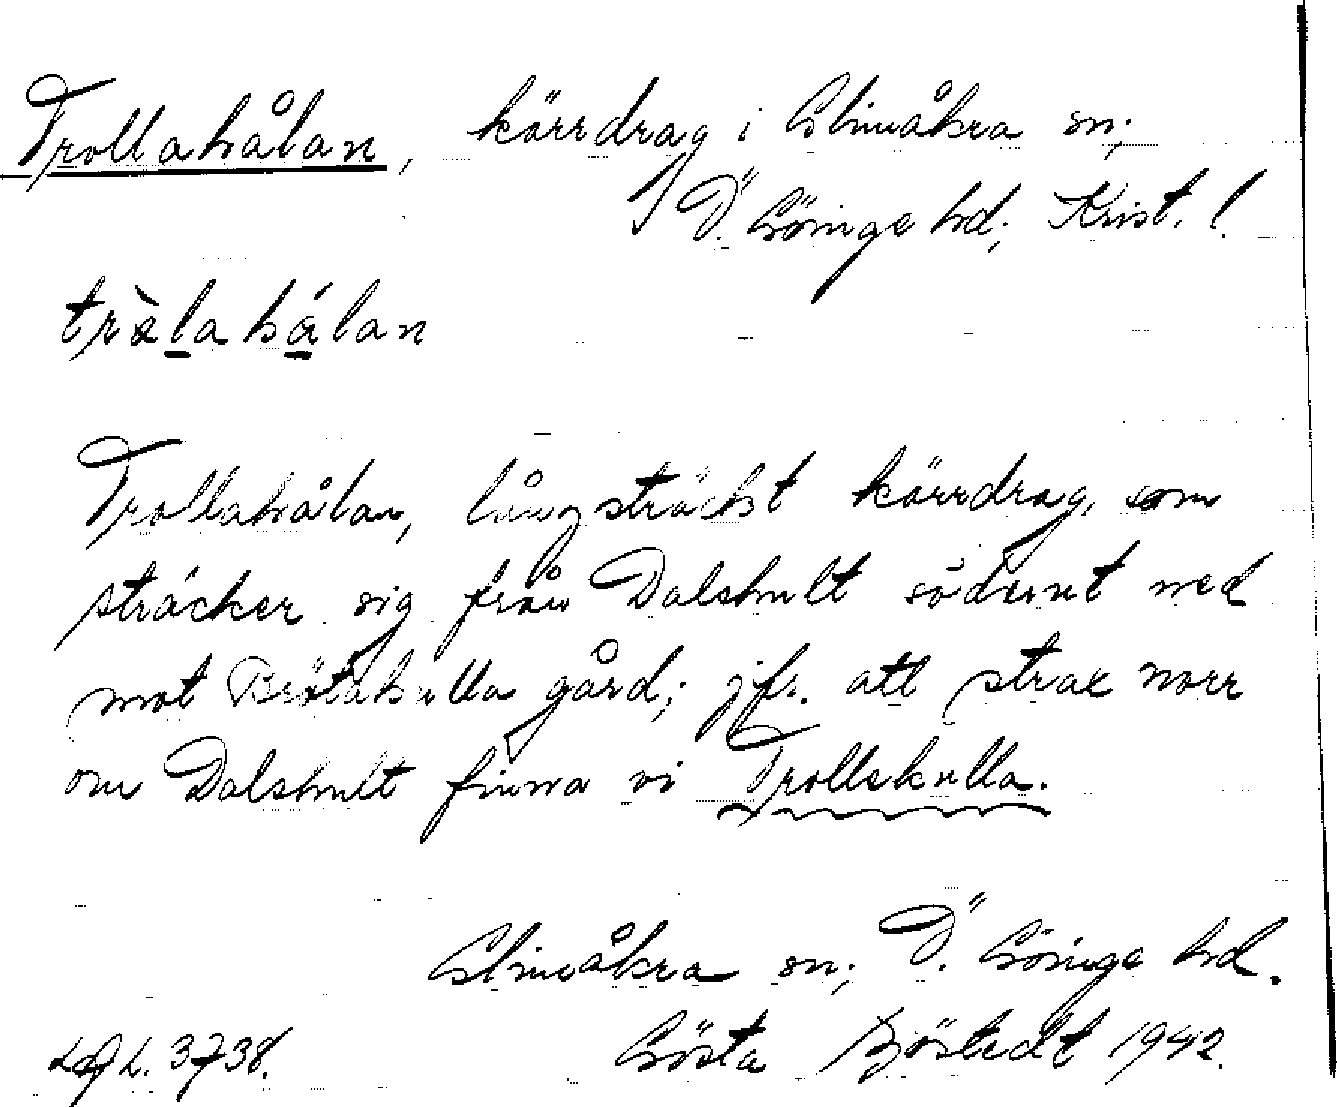 Trollahålan, kärrdrag i Glimåkra sn;
Ö. Göinge hd; Krist. l.
tròlahålan
Trollahålan, långsträckt kärrdrag, som
sträcker sig från Dalshult söderut ned
mot Brötakulla gård; jfr. att strax norr
om Dalshult finna vi Trollskulla.
Glimåkra sn; Ö. Göinge hd.
LAL. 3738. Gösta Sjöstedt 1942.